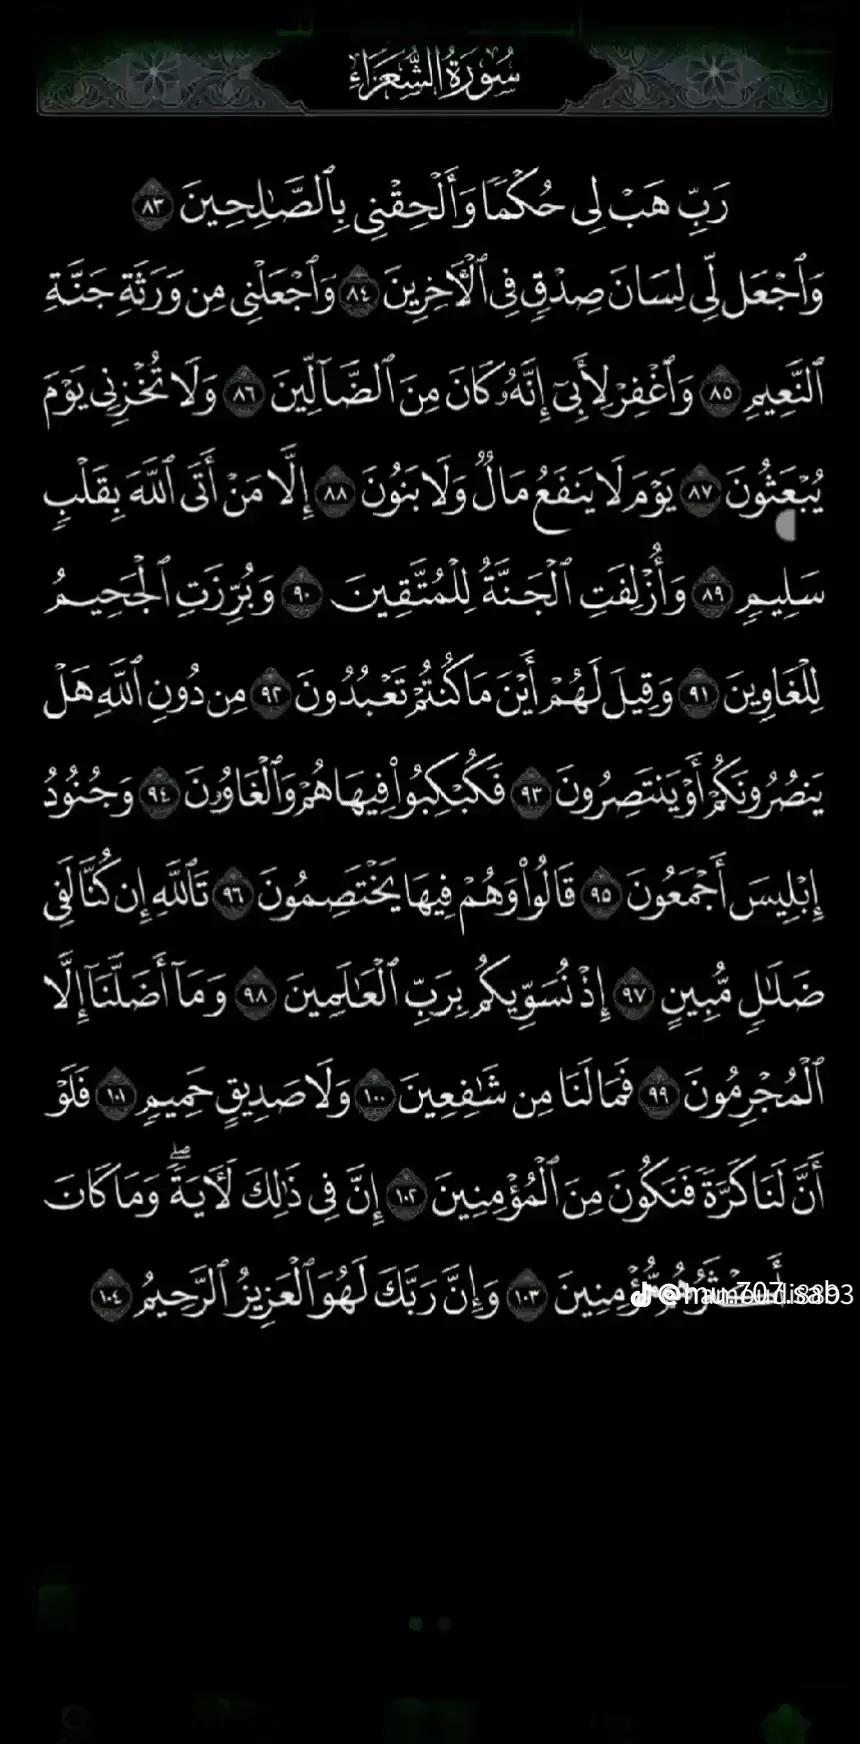 سُورَةُ الشُّعَرَاءِ
رَبِّ هَبْ لِى حُكْمًا وَأَلْحِقْنِى بِٱلصَّـٰلِحِينَ ٨٣
وَٱجْعَل لِّى لِسَانَ صِدْقٍ فِى ٱلْـَٔاخِرِينَ ٨٤ وَٱجْعَلْنِى مِن وَرَثَةِ جَنَّةِ
ٱلنَّعِيمِ ٨٥ وَٱغْفِرْ لِأَبِىٓ إِنَّهُۥ كَانَ مِنَ ٱلضَّآلِّينَ ٨٦ وَلَا تُخْزِنِى يَوْمَ
يُبْعَثُونَ ٨٧ يَوْمَ لَا يَنفَعُ مَالٌ وَلَا بَنُونَ ٨٨ إِلَّا مَنْ أَتَى ٱللَّهَ بِقَلْبٍ
سَلِيمٍ ٨٩ وَأُزْلِفَتِ ٱلْجَنَّةُ لِلْمُتَّقِينَ ٩٠ وَبُرِّزَتِ ٱلْجَحِيمُ
لِلْغَاوِينَ ٩١ وَقِيلَ لَهُمْ أَيْنَ مَا كُنتُمْ تَعْبُدُونَ ٩٢ مِن دُونِ ٱللَّهِ هَلْ
يَنصُرُونَكُمْ أَوْ يَنتَصِرُونَ ٩٣ فَكُبْكِبُوا۟ فِيهَا هُمْ وَٱلْغَاوُۥنَ ٩٤ وَجُنُودُ
إِبْلِيسَ أَجْمَعُونَ ٩٥ قَالُوا۟ وَهُمْ فِيهَا يَخْتَصِمُونَ ٩٦ تَٱللَّهِ إِن كُنَّا لَفِى
ضَلَـٰلٍ مُّبِينٍ ٩٧ إِذْ نُسَوِّيكُم بِرَبِّ ٱلْعَـٰلَمِينَ ٩٨ وَمَآ أَضَلَّنَآ إِلَّا
ٱلْمُجْرِمُونَ ٩٩ فَمَا لَنَا مِن شَـٰفِعِينَ ١٠٠ وَلَا صَدِيقٍ حَمِيمٍ ١٠١ فَلَوْ
أَنَّ لَنَا كَرَّةً فَنَكُونَ مِنَ ٱلْمُؤْمِنِينَ ١٠٢ إِنَّ فِى ذَٰلِكَ لَـَٔايَةً ۖ وَمَا كَانَ
أَكْثَرُهُم مُّؤْمِنِينَ ١٠٣ وَإِنَّ رَبَّكَ لَهُوَ ٱلْعَزِيزُ ٱلرَّحِيمُ ١٠٤